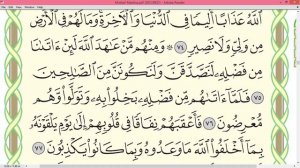 ٱللَّهُ عَذَابًا أَلِيمًا فِي ٱلدُّنْيَا وَٱلْأَخِرَةِ وَمَا لَهُمْ فِي ٱلْأَرْضِ
مِن وَلِيٍّ وَلَا نَصِيرٍ ٧٤ وَمِنْهُم مَّنْ عَٰهَدَ ٱللَّهَ لَئِنْ ءَاتَىٰنَا
مِن فَضْلِهِۦ لَنَصَّدَّقَنَّ وَلَنَكُونَنَّ مِنَ ٱلصَّٰلِحِينَ
٧٥ فَلَمَّآ ءَاتَىٰهُم مِّن فَضْلِهِۦ بَخِلُوا۟ بِهِۦ وَتَوَلَّوا۟ وَّهُم
مُّعْرِضُونَ ٧٦ فَأَعْقَبَهُمْ نِفَاقًا فِي قُلُوبِهِمْ إِلَىٰ يَوْمِ يَلْقَوْنَهُۥ
بِمَآ أَخْلَفُوا۟ ٱللَّهَ مَا وَعَدُوهُ وَبِمَا كَانُوا۟ يَكْذِبُونَ ٧٧